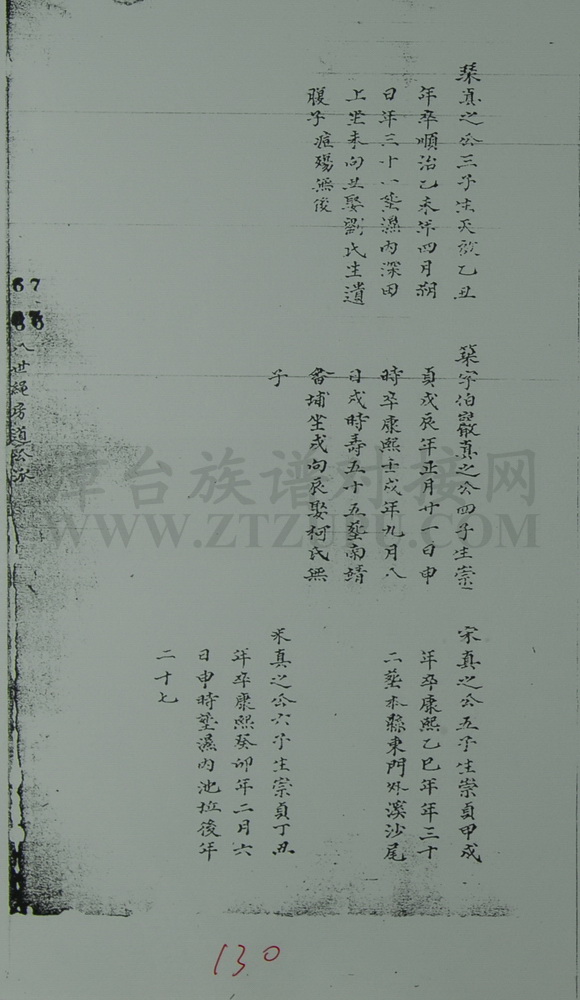 琹真之公三子生天啟乙丑
年卒順治乙未年四月朔
日年三十一塟濕內深田
上坐未向丑娶劉氏生遺
腹子痘殤無後
築字伯巖真之公四子生崇
貞戊辰年正月十一日申
時卒康熙壬戌年九月八
日戌時壽五十五塟南靖
畬埔坐戌向辰娶柯氏無
子
宋真之公五子生崇貞甲戌
年卒康熙乙巳年年三十
二塟本縣東門外溪沙尾
釆真之公六子生崇貞丁丑
年卒康熙癸卯年二月六
日申時塟濕內池墘後年
二十七
67
八世絕房道公派
漳台族谱对接网
WWW.ZTZUPU.COM
130